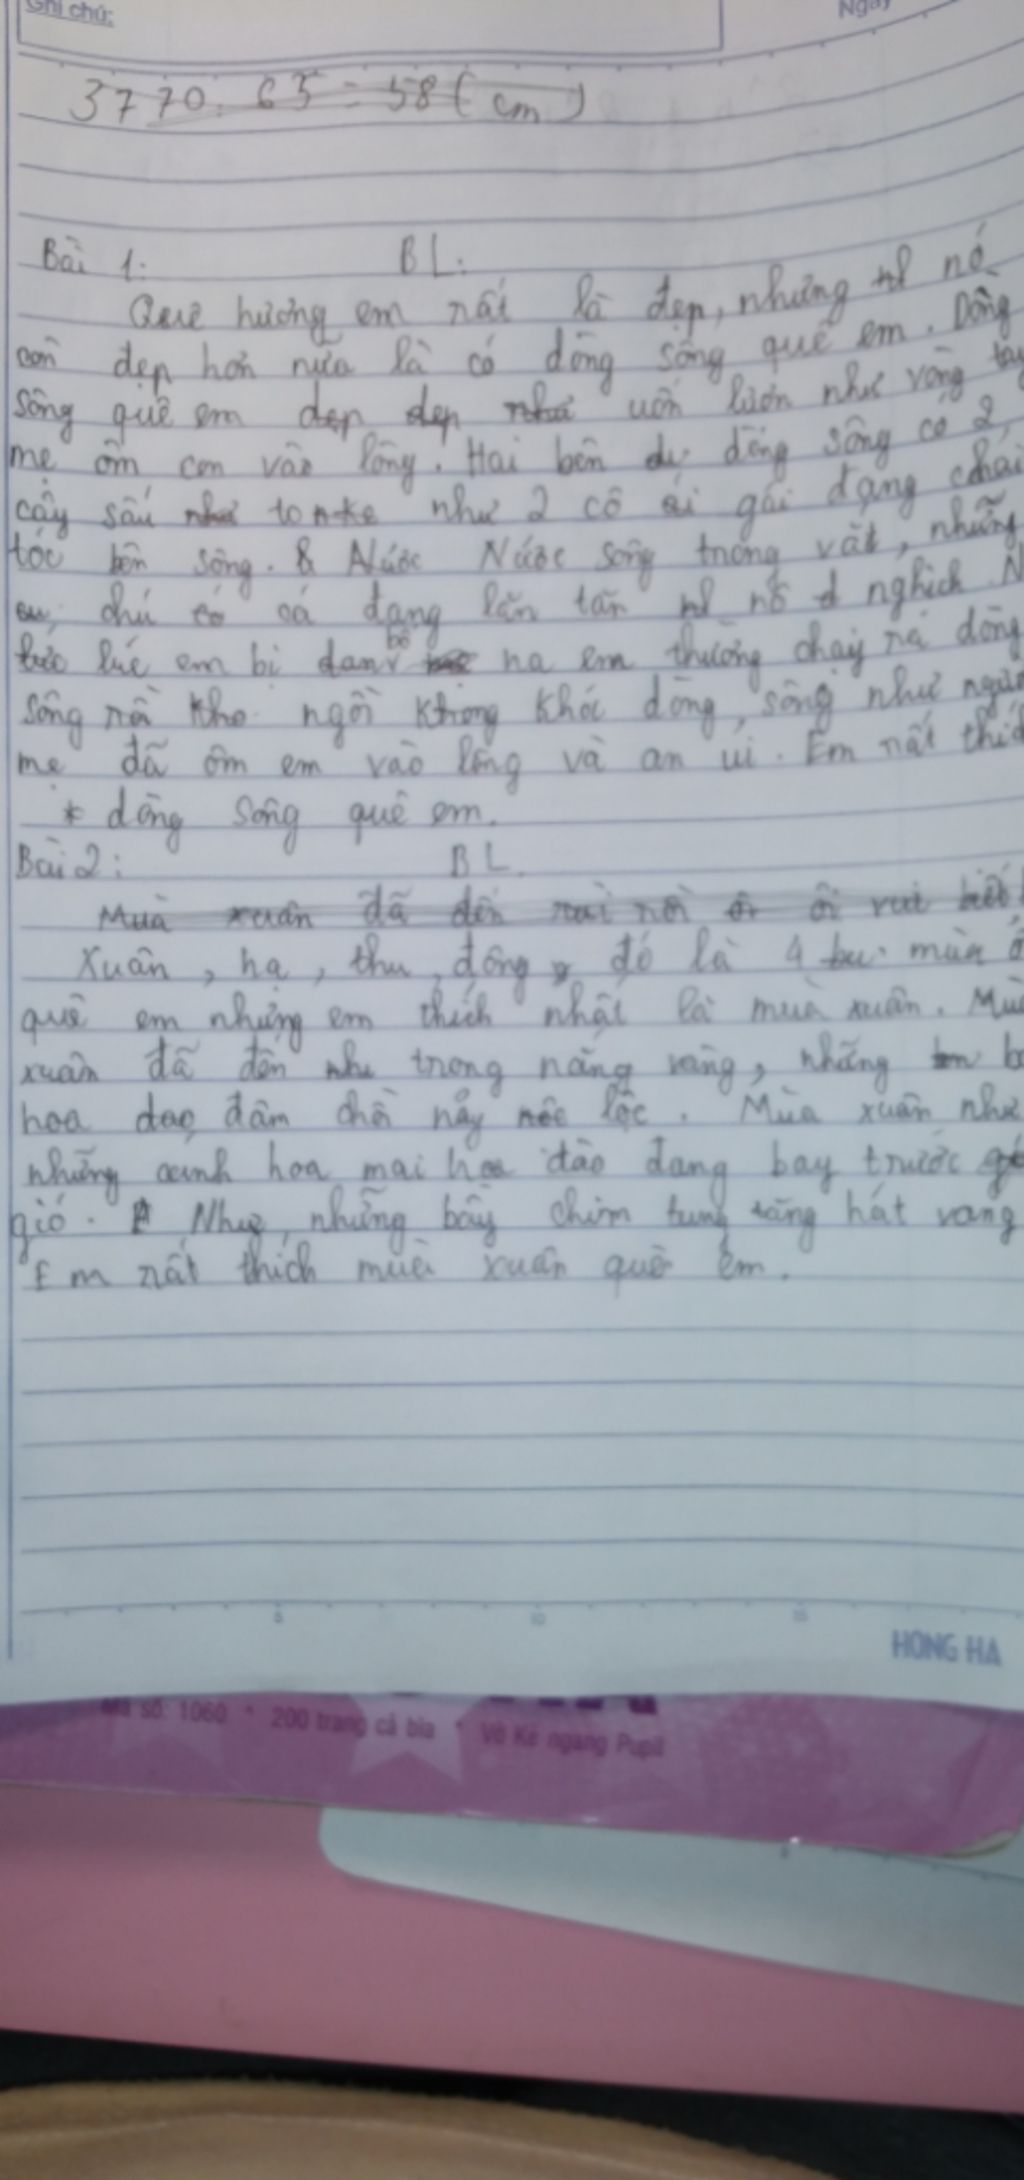 Ghi chú:
Ngày
3770 : 65 = 58 (cm)
Bài 1: BL:
Quê hương em rất là đẹp, nhưng nó
còn đẹp hơn nữa là có dòng sông quê em. Dòng
sông quê em uốn lượn như vòng tay
mẹ ôm con vào lòng. Hai bên dòng sông có 2
cây sấu to như 2 cô gái đang chải
tóc bên sông. Nước sông trong vắt, những
chú cá đang lăn tăn nô nghịch
lúc em bị bố la em thường chạy ra dòng
sông ngồi khóc dòng sông như người
mẹ đã ôm em vào lòng và an ủi. Em rất thích
* dòng sông quê em.
Bài 2: BL.
Mùa xuân đã đến rồi
Xuân, hạ, thu, đông, đó là 4 mùa ở
quê em nhưng em thích nhất là mùa xuân. Mùa
xuân đã đến trong nắng vàng, những
hoa đào đâm chồi nảy lộc. Mùa xuân như
những cánh hoa mai đào đang bay trước
gió. Như những bầy chim tung tăng hát vang
Em rất thích mùa xuân quê em.
5 10 15
HONG HA
Mã số: 1060 * 200 trang cả bìa * Vở Kẻ ngang Pupil